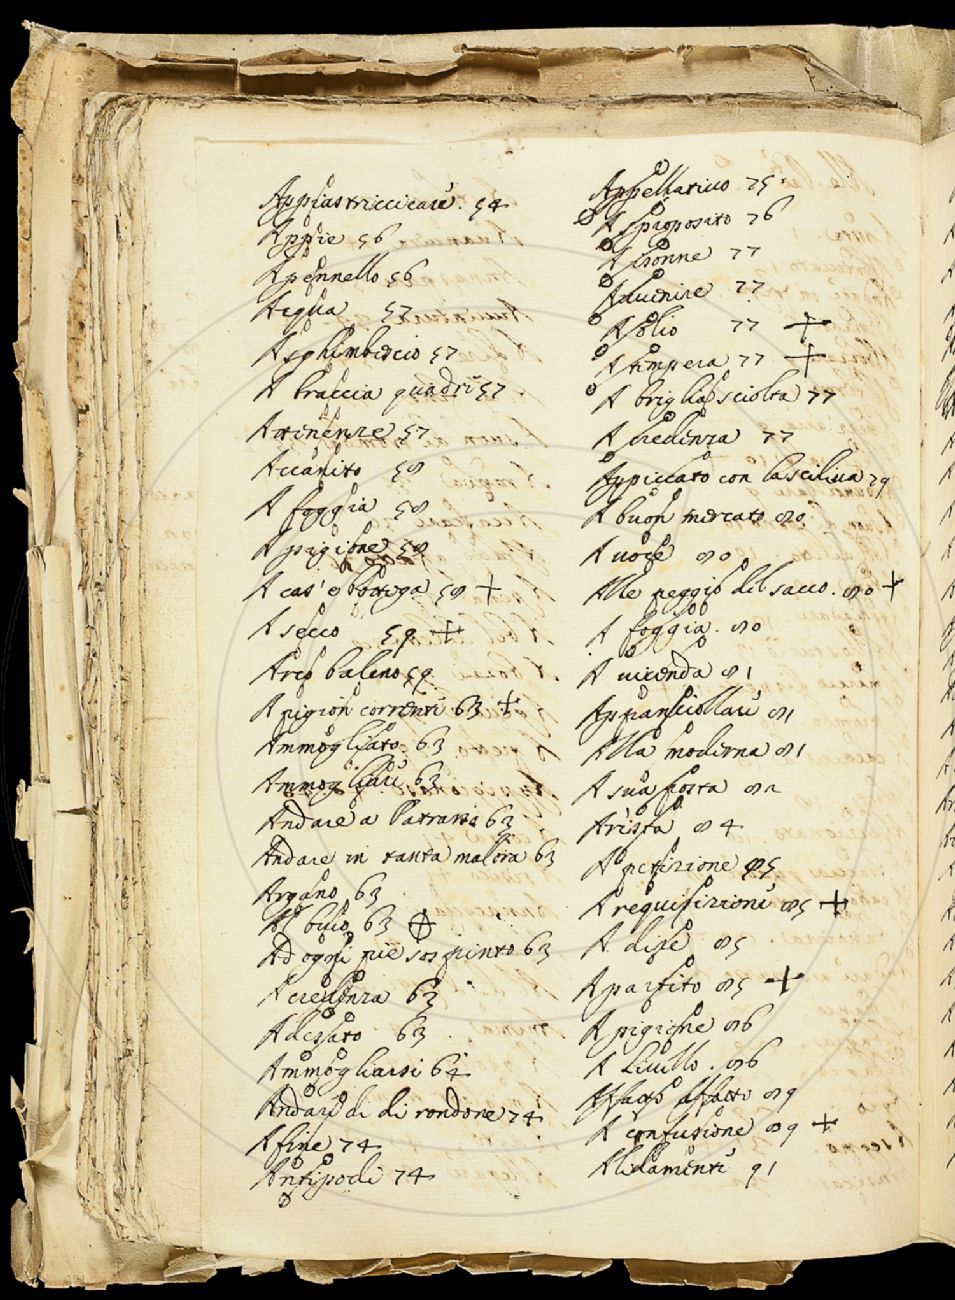 Appiastricciare. 54
Appie 56
Apennello 56
Aeglia 57
A sghimbescio 57
A braccia quadre 57
Attenersi 57
Accanito 58
A foggia 58
A pigione 58
A cas' o bottega 58 +
A secco 59 +
Arco baleno 59
A pigion correnti 63 +
Ammogliato 63
Ammogliare 63
Andare a Patrasso 63
Andare in tanta malora 63
Argano 63
Al buio 63
Ad oggi pie sospinto 63
A credenza 63
Adessato 63
Ammogliarsi 64
Andare di di rondone 74
A fine 74
Antipode 74
Appellativo 75
A sproposito 76
A isonne 77
Auuenire 77
A solio 77 +
A tempera 77 +
A briglia sciolta 77
A credenza 77
Appiccato con la sciliua 79
A buon mercato 80
A uoce 80
Alle peggio del sacco. 80 +
A foggia. 80
A uicenda 81
Appiansciollare 81
Alla moderna 81
A sua posta 82
Arista 84
A petizione 85
A requisizione 85 +
A dire 85
A partito 85 +
A pigione 86
A liuello. 86
Affatto affatto 89
A confusione 89 +
Alidamenti 91